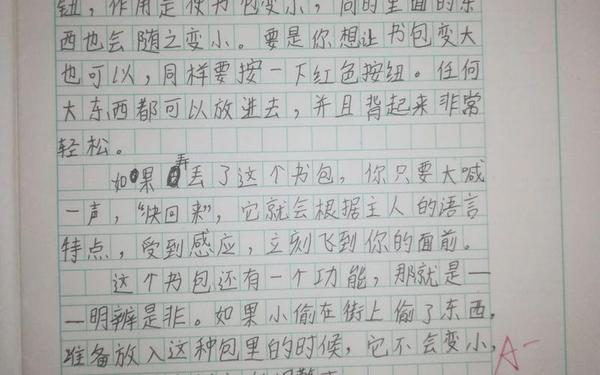 钮，作用是使书包变小，同时里面的东
西也会随之变小。要是你想让书包变大
也可以，同样要按一下红色按钮。任何
大东西都可以放进去，并且背起来非常
轻松。
如果弄丢了这个书包，你只要大喊
一声，“快回来”，它就会根据主人的语言
特点，受到感应，立刻飞到你的面前。
这个书包还有一个功能，那就是—
—明辨是非。如果小偷在街上偷了东西，
准备放入这种包里的时候，它不会变小，
A-